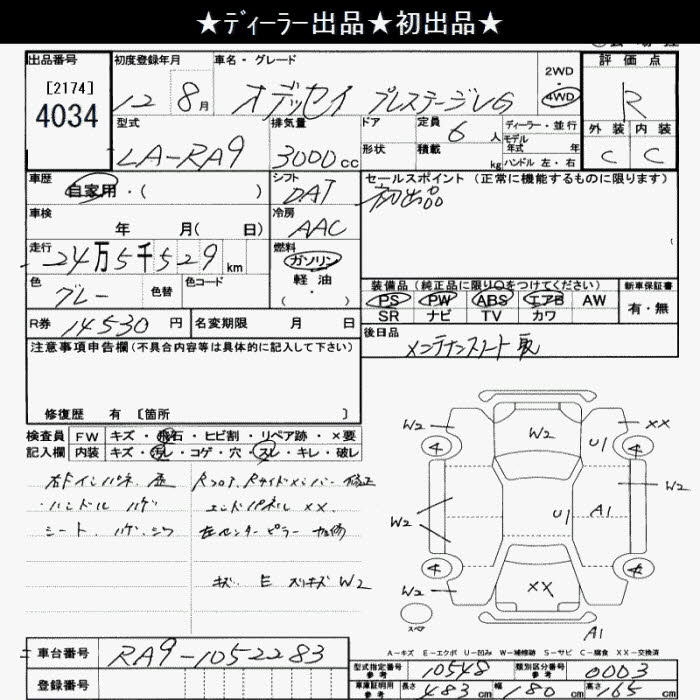 ★ディーラー出品★初出品★
出品番号 初度登録年月 車名・グレード 2WD・4WD 評価点
[2174] 4034 12 8月 オデッセイ プレステージVG R
型式 排気量 ドア 定員 6人 ディーラー・並行 外装 内装
LA-RA9 3000cc 形状 積載 kg モデル年式 年 C C
ハンドル 左・右
車歴 シフト セールスポイント (正常に機能するものに限ります)
自家用・( ) DAT 初出品
車検 年 月( 日) 冷房 AAC
走行 24万5千529km 燃料 ガソリン 軽油・( )
色 グレー 色替 色コード
装備品(純正品に限り○をつけてください) 新車保証書
PS PW ABS エアB AW 有・無
SR ナビ TV カワ
R券 14530円 名変期限 月 日 後日品
メンテナンスノート
注意事項申告欄(不具合内容等は具体的に記入して下さい)
修復歴 有 [箇所 ]
検査員記入欄 FW キズ・飛石・ヒビ割・リペア跡・×要
内装 キズ・汚レ・コゲ・穴・スレ・キレ・破レ
ハンドル ハゲ エンドパネル XX
シート ハゲ・シワ 左センターピラー
キズ E スリキズ W2
W2 XX
W2 U1
4 4
W2 W2
U1 A1
4 4
W2 XX
スペア A1
A-キズ E-エクボ U-凹み W-補修跡 S-サビ C-腐食 XX-交換済
車台番号 RA9-1052283
登録番号
型式指定番号 参考 10548 類別区分番号 参考 0003
車庫証明用 参考 長さ 483cm 幅 180cm 高さ 165cm